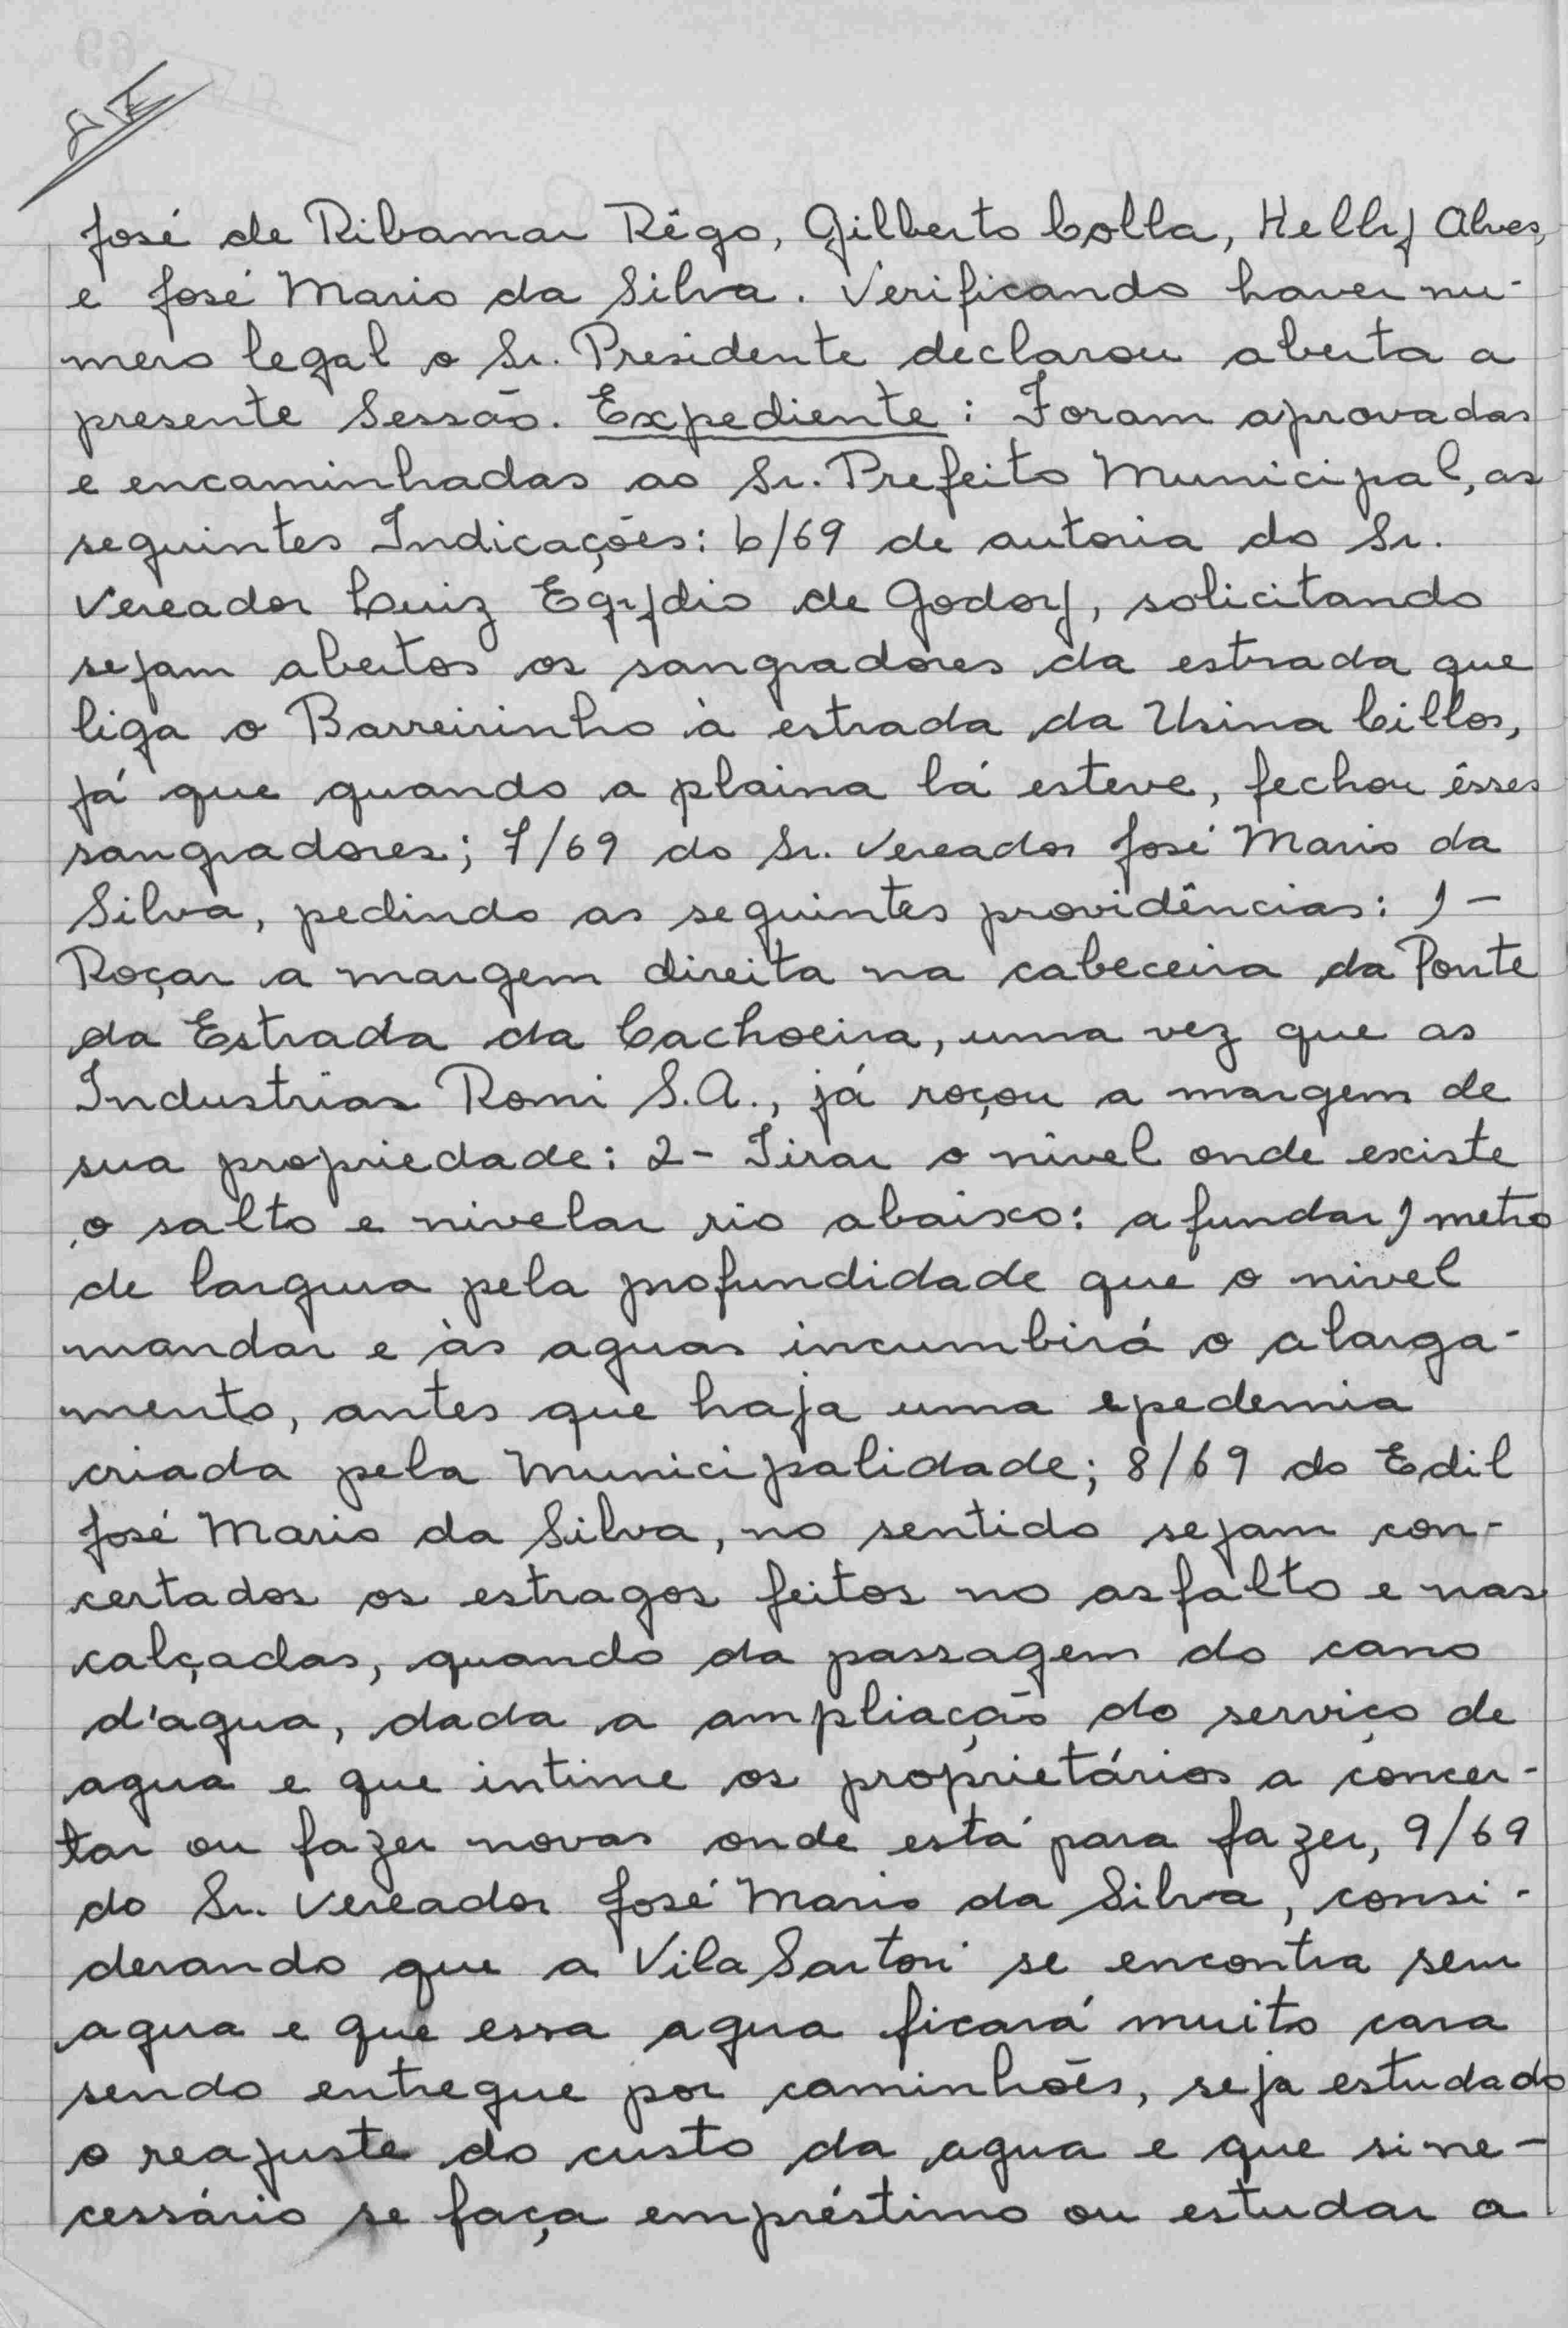 José de Ribamar Rêgo, Gilberto Colla, Helly Alves,
e José Mario da Silva. Verificando haver nu-
mero legal o Sr. Presidente declarou aberta a
presente Sessão. Expediente: Foram aprovadas
e encaminhadas ao Sr. Prefeito Municipal, as
seguintes Indicações: 6/69 de autoria do Sr.
Vereador Luiz Egydio de Godoy, solicitando
sejam abertos os sangradores da estrada que
liga o Barreirinho à estrada da Usina Cillos,
já que quando a plaina lá esteve, fechou êsses
sangradores; 7/69 do Sr. Vereador José Mario da
Silva, pedindo as seguintes providências: 1 -
Roçar a margem direita na cabeceira da Ponte
da Estrada da Cachoeira, uma vez que as
Industrias Romi S.A., já roçou a margem de
sua propriedade: 2 - Tirar o nivel onde existe
o salto e nivelar rio abaixo: afundar 1 metro
de largura pela profundidade que o nivel
mandar e às aguas incumbirá o alarga-
mento, antes que haja uma epedemia
criada pela Municipalidade; 8/69 do Edil
José Mario da Silva, no sentido sejam con-
certados os estragos feitos no asfalto e nas
calçadas, quando da passagem do cano
d'agua, dada a ampliação do serviço de
agua e que intime os proprietários a concer-
tar ou fazer novas onde está para fazer, 9/69
do Sr. Vereador José Mario da Silva, consi-
derando que a Vila Sartori se encontra sem
agua e que essa agua ficará muito cara
sendo entregue por caminhões, seja estudado
o reajuste do custo da agua e que si ne-
cessário se faça empréstimo ou estudar a